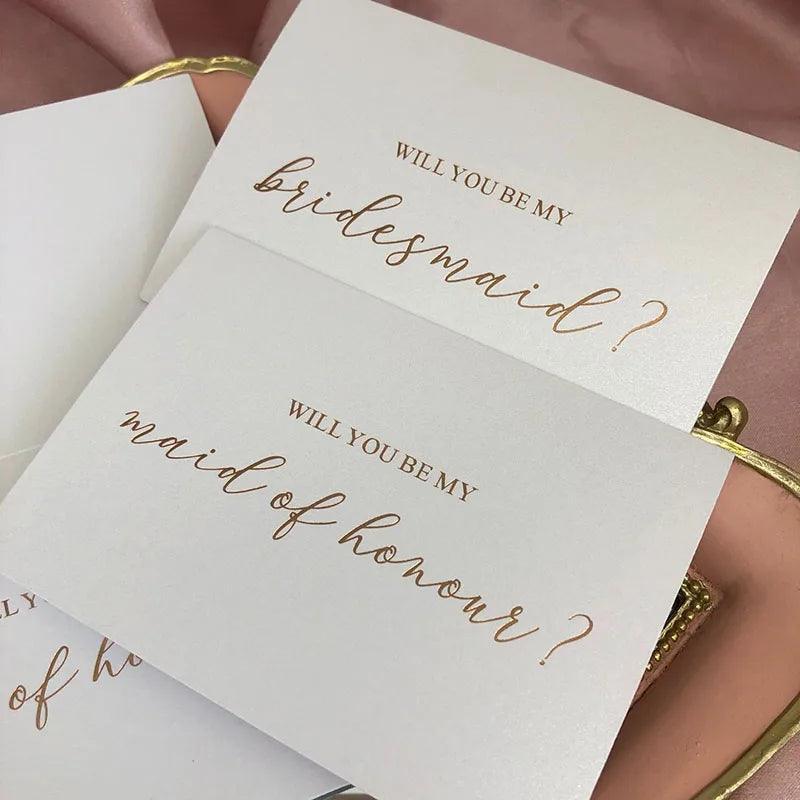 WILL YOU BE MY
bridesmaid?
WILL YOU BE MY
maid of honour?
of